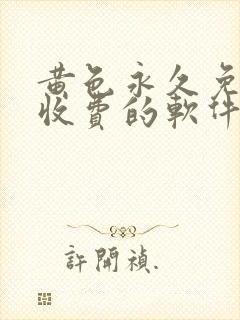 黄色永久免
收費的軟件
許開禎.